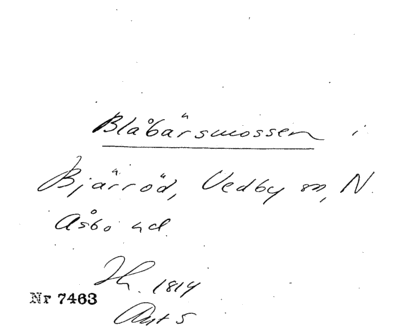 Blåbärsmossen i
Bjärröd, Vedby sn, N.
Åsbo hd.
Hh. 1814
Nr 7463
Avt 5